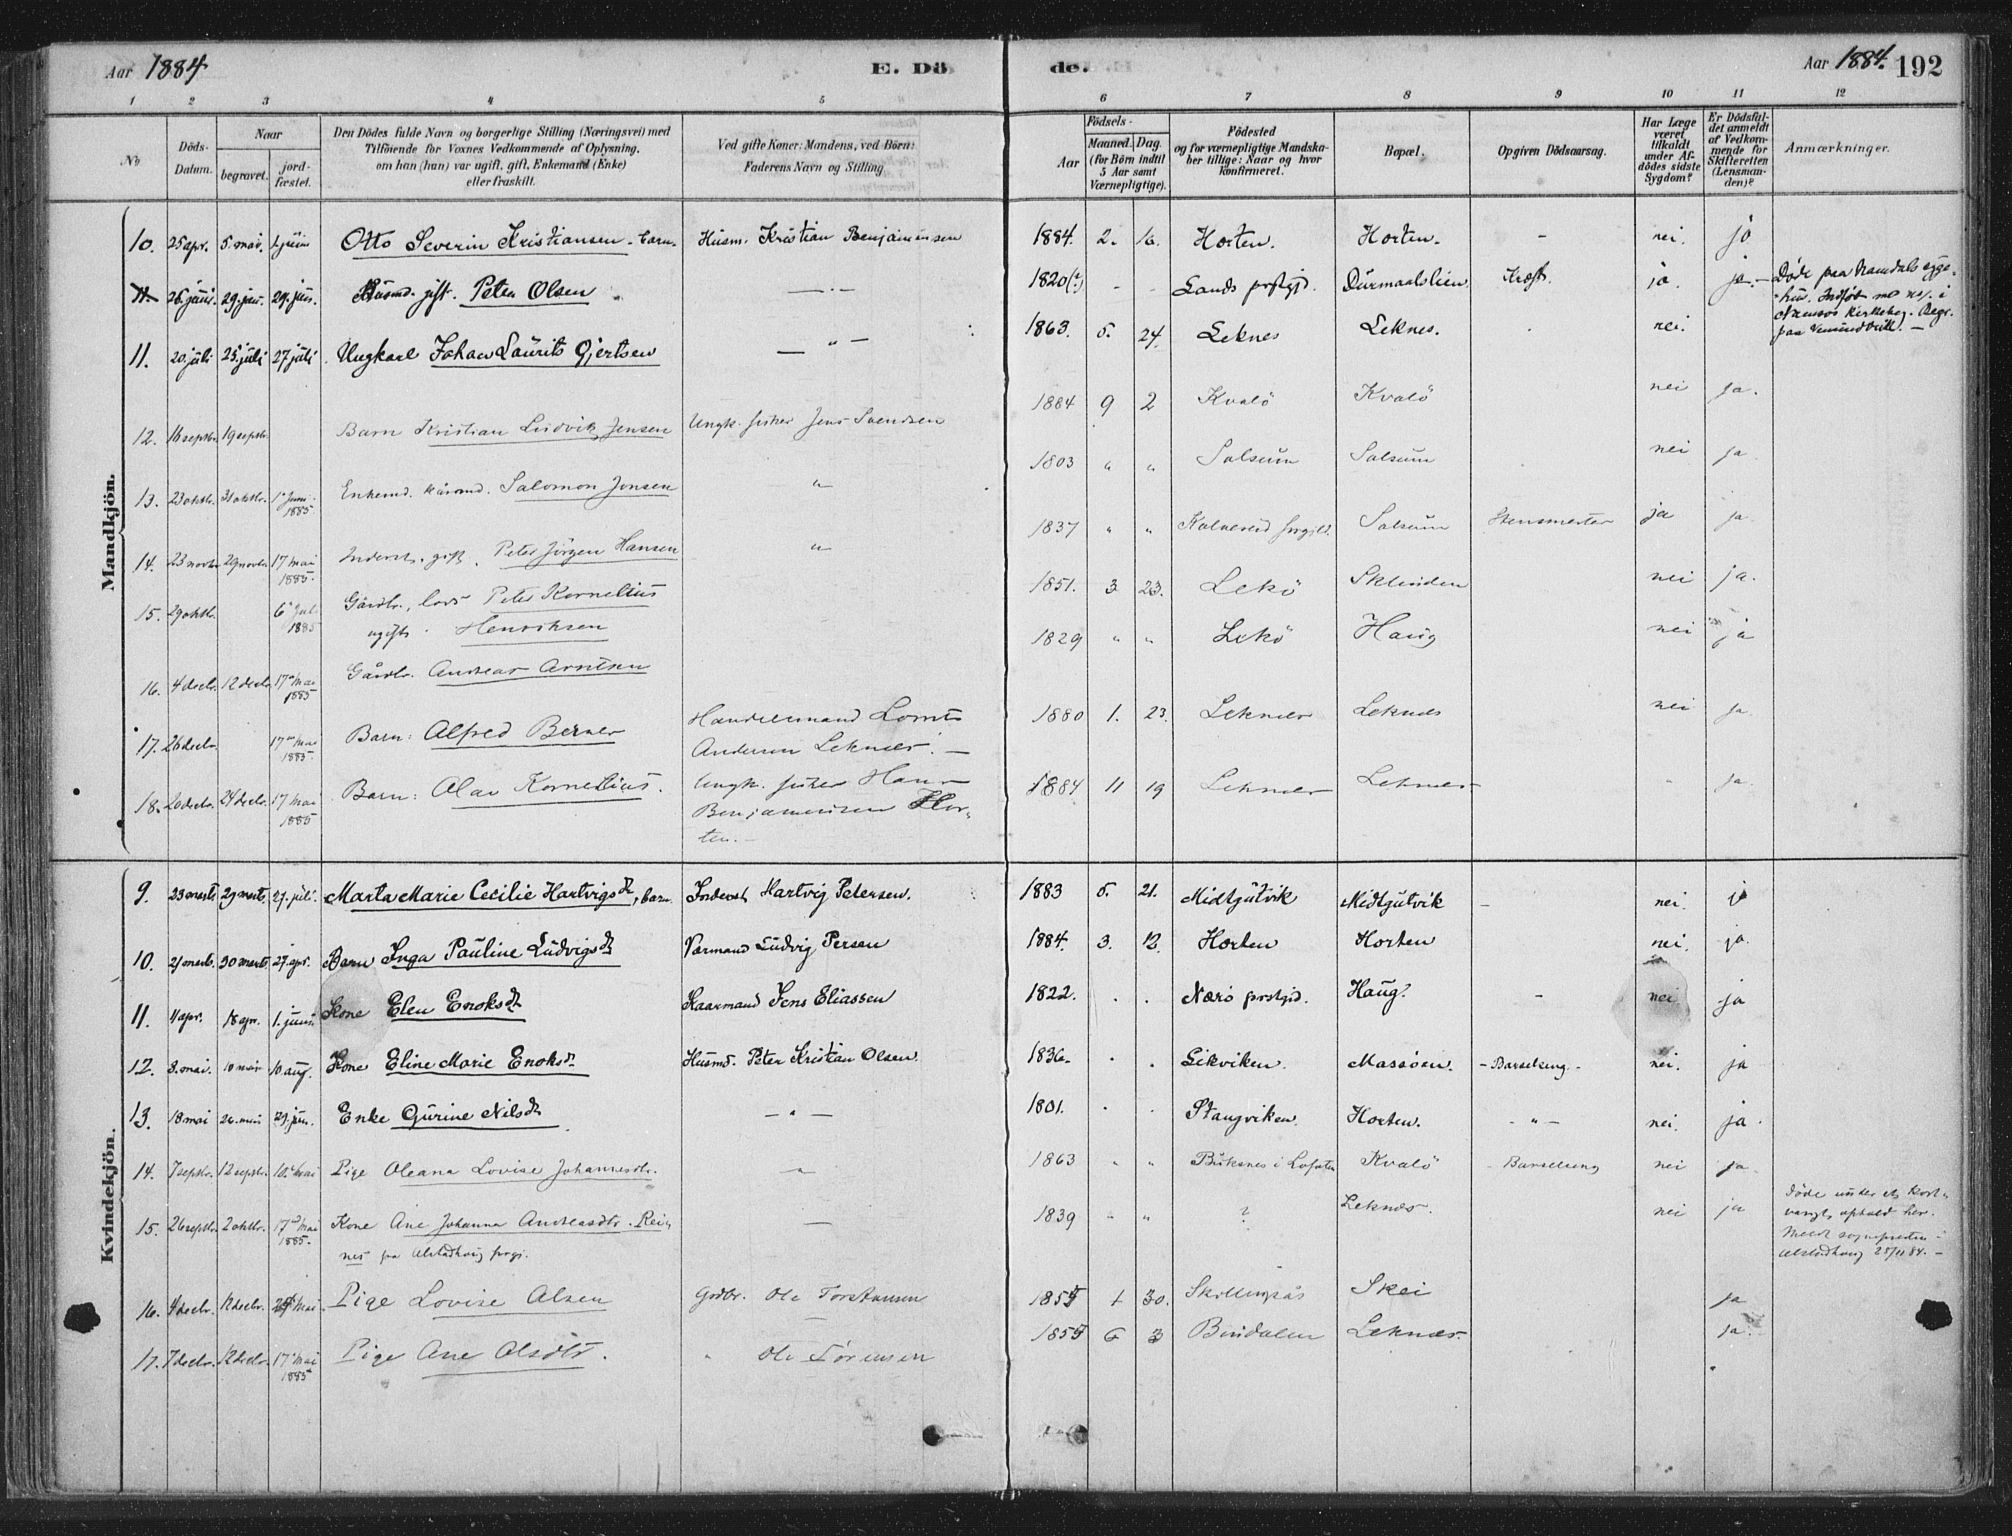 Aar 1884 E. Dö de. Aar 1884. 192
1 2 3 4 5 6 7 8 9 10 11 12
No
Döds-Datum.
Naar
begravet.
jord-fæstet.
Den Dödes fulde Navn og borgerlige Stilling (Næringsvei) med
Tilföiende for Voxnes Vedkommende af Oplysning.
om han (hun) var ugift, gift, Enkemand (Enke)
eller fraskilt.
Ved gifte Koner: Mandens, ved Börn:
Faderens Navn og Stilling.
Födsels-
Aar
Maaned. Dag.
(for Börn indtil
5 Aar samt
Værnepligtige).
Födested
og for værnepligtige Mandska-
ber tillige: Naar og hvor
konfirmeret.
Bopæl.
Opgiven Dödsaarsag.
Har Læge
været
tilkaldt
under Af-
dödes sidste
Sygdom?
Er Dödsfal-
det anmeldt
af Vedkom-
mende for
Skifteretten
(Lensman-
den)?
Anmærkninger.
Mandkjön.
10. 25 apr. 5. mai. 1 juni Otto Severin Kristiansen. barn. Husm. Kristian Benjaminsen 1884. 2. 16. Horten. Horten. - nei. ja
11. 26 juni. 29. jun. 29. jun. Husmd. gift. Peter Olsen — . — 1820(?) - - Lands prstgjd. Dürmaalslien Kræft. ja. ja. —
Døde paa Namdals syge-
hus.
paa
11. 20. juli 25. juli 27 juli Ungkarl Johan Laurits Gjertsen — " — 1863. 5. 24. Leknes Leknes. nei.
12. 16 septbr. 19 septbr. Barn Kristian Ludvik Jensen Ungk. fisker Jens Svendsen 1884 9 2 Kvalö Kvalö nei ja.
13. 23 oktbr. 31 oktbr. 1ste Juni 1885. Enkemd. kårmd. Salomon Jonsen " 1803 " " Solsum Solsum nei ja
14. 23 novbr. 29 novbr. 17 mai 1885. Inderst. gift. Peter Jörgen Hansen " 1837 " " Kolvereid prstgjld. Solsum ja ja
15. 29 oktbr. 6te Juli 1885 Gårdbr., lods Peter Kornelius
ugift. Henriksen 1851. 3 23. Lekö Sklinden nei ja.
16. 4 decbr. 12 decbr. 17de Mai 1885 Gårdbr. Andreas Arntsen 1829 " " Lekö Haug nei ja
17. 26 decbr. 17de Mai 1885. Barn: Alfred Berner Handelsmand Lorents
Andersen Leknes. — 1880 1. 23. Leknes Leknes nei ja
18. 20 decbr. 24 decbr. 17 Mai 1885 Barn: Olav Kornelius. Ungk. fisker Hans
Benjaminsen Hor-
ten. — 1884 11 19 Leknes Leknes - ja.
Kvindekjön.
9. 23 marts 29 marts 27. juli. Marta Marie Cecilie Hartvigsdr, barn. Inderst Hartvig Petersen. 1883 5. 21. Midtgutvik Midtgutvik — nei. ja
10. 21 marts. 30 marts 27. apr. Barn Inga Pauline Ludvigsdr Værmand Ludvig Persen 1884. 3. 12. Horten Horten nei. ja.
11. 11 apr. 18 apr. 1. juni Kone Elen Enoksdr Kaarmand Jens Eliassen 1822. . . Nærö prstgjd. Haug. - nei ja
12. 3. mai. 10 mai 10 aug. Kone Eline Marie Enoksdr Husmd. Peter Kristian Olsen. 1836. . . Likviken. Massöen. - Barselseng. - nei. ja
13. 18 mai 26. mai 29. jun. Enke Gurine Nilsdr — " — 1801. . . Stangviken. Horten. - " - nei. ja.
14. 7 septbr. 12 septbr. 10. Mai Pige Oleana Lovise Johannesdtr. " 1863 " " Buksnes i Lofoten Kvalö Barselseng nei ja.
15. 26 septbr. 2 oktbr. 17de Mai 1885. Kone Ane Johanna Andreasdtr. Rei-
nes pa Alstadhoug prgj. — 1839 " " ? Leknes. nei ja
Døde under et kort-
varigt ophold her.
Meldt sognepresten i
Alstadhoug 25/11 84. —
16. 4 decbr. 12 decbr. Mai Pige Lovise Olsen Gårdbr. Ole Torstensen 1855 1 30. Skillingsås Skei ja
17. 7 decbr. 12 decbr. 17de Mai 1885 Pige Ane Olsdtr. " Ole Sörensen 1855 6 3 Bindalen Leknes. ja.